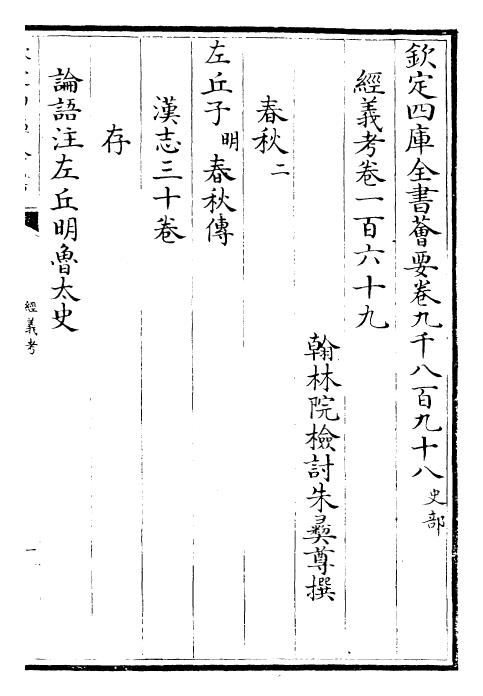 欽定四庫全書薈要卷九千八百九十八 史部
經義考卷一百六十九
翰林院檢討朱彝尊撰
春秋二
左丘子明春秋傳
漢志三十卷
存
論語注左丘明魯太史
經義考
一